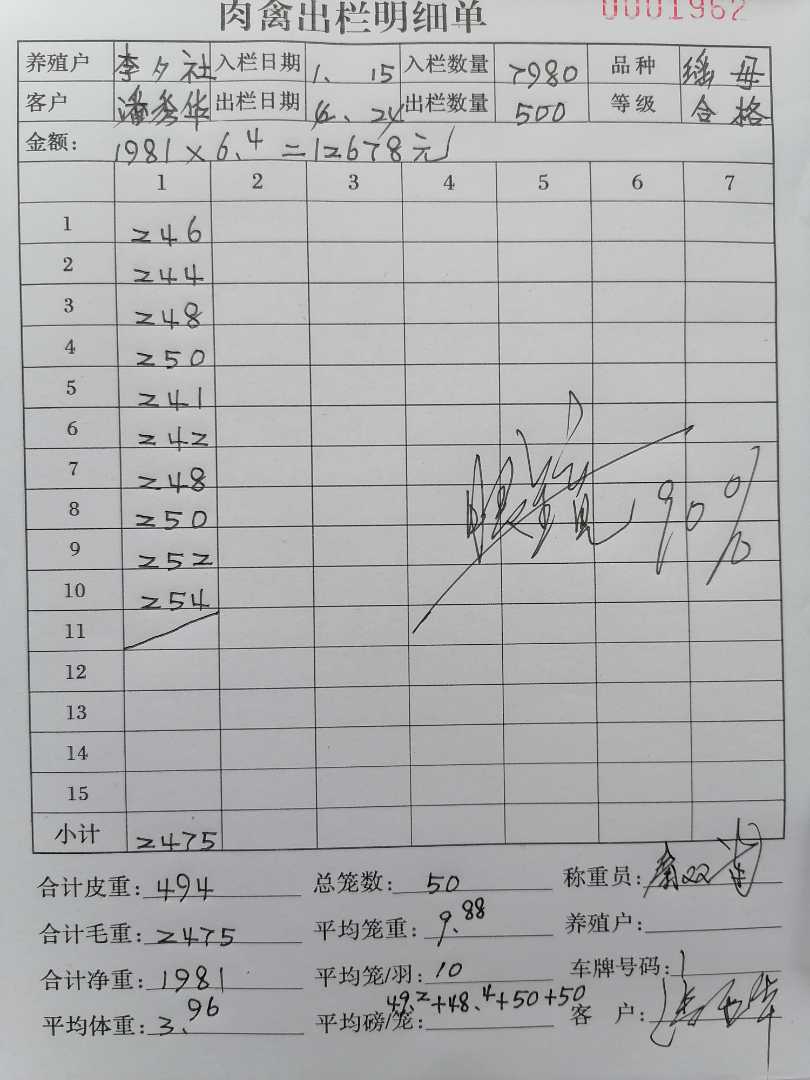 肉禽出栏明细单 0001962
养殖户 李夕社 入栏日期 1、15 入栏数量 7980 品种 瑶母
客户 潘秀华 出栏日期 6、24 出栏数量 500 等级 合格
金额: 1981×6.4=12678元
1 2 3 4 5 6 7
1 246
2 244
3 248
4 250
5 241
6 242
7 248
8 250
9 252
10 254
11
12
13
14
15
90%
小计 2475
合计皮重: 494 总笼数: 50 称重员:
合计毛重: 2475 平均笼重: 9.88 养殖户:
合计净重: 1981 平均笼/羽: 10 车牌号码:
平均体重: 3.96 平均磅/笼: 49.2+48.4+50+50 客户: